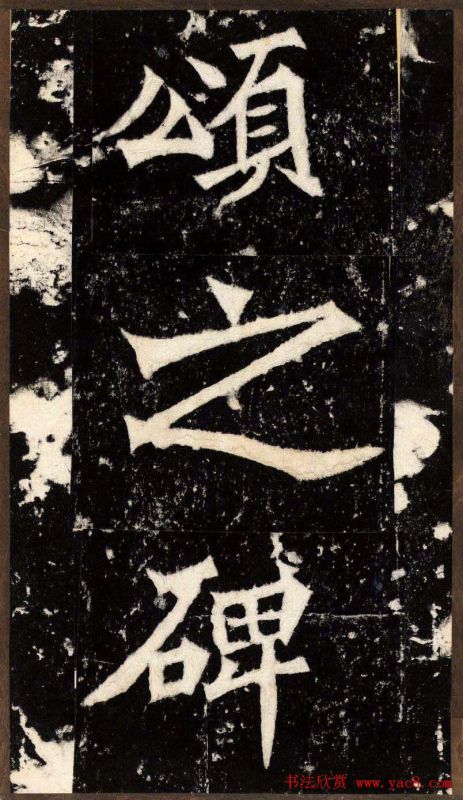 頌
之
碑
书法欣赏 www.yac8.com